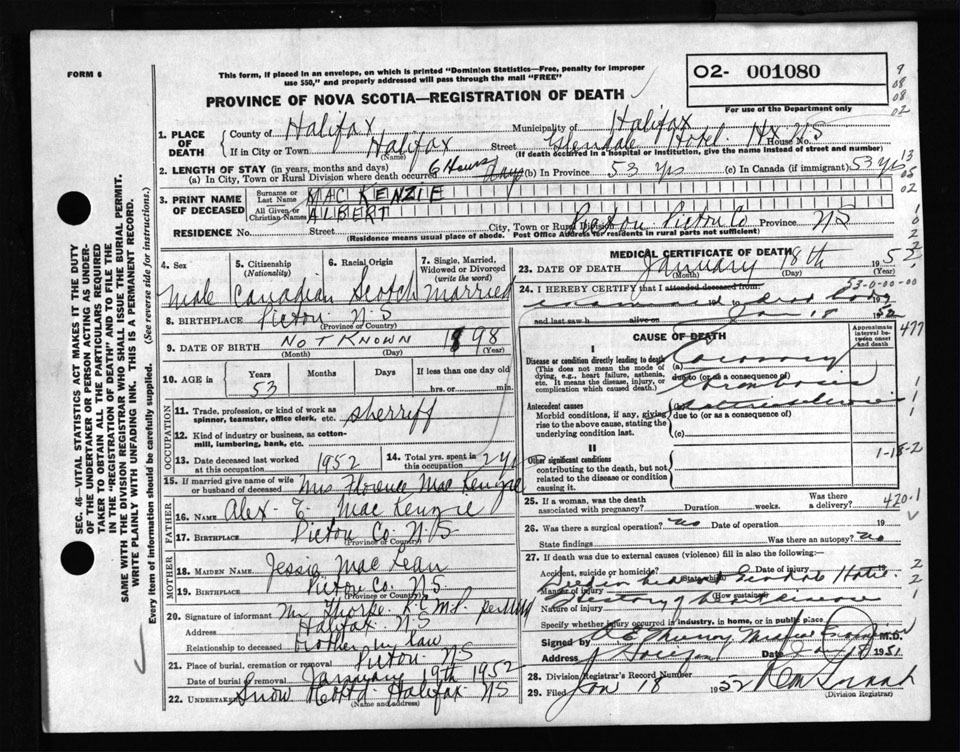 FORM 6
This form, if placed in an envelope, on which is printed "Dominion Statistics—Free, penalty for improper
use $50," and properly addressed will pass through the mail "FREE"
PROVINCE OF NOVA SCOTIA—REGISTRATION OF DEATH
O2- 001080
For use of the Department only
9
08
08
02
1. PLACE OF DEATH
County of Halifax Municipality of Halifax
If in City or Town Halifax Street Glendale Hotel. Hx NS House No.
(Name) (If death occurred in a hospital or institution, give the name instead of street and number)
2. LENGTH OF STAY (in years, months and days)
(a) In City, Town or Rural Division where death occurred 6 Hours (b) In Province 53 Yrs (c) In Canada (if immigrant) 53 Yrs
3. PRINT NAME OF DECEASED
Surname or Last Name MAC KENZIE
All Given or Christian Names ALBERT
RESIDENCE No. Street City, Town or Rural Division Pictou Pictou Co Province NS
(Residence means usual place of abode. Post Office Address for residents in rural parts not sufficient)
4. Sex Male
5. Citizenship (Nationality) Canadian
6. Racial Origin Scotch
7. Single, Married, Widowed or Divorced (write the word) Married
8. BIRTHPLACE Pictou NS
(Province or Country)
9. DATE OF BIRTH NOT KNOWN 1898
(Month) (Day) (Year)
10. AGE in Years Months Days If less than one day old
53 hrs. or min.
OCCUPATION
11. Trade, profession, or kind of work as spinner, teamster, office clerk, etc. Sherriff
12. Kind of industry or business, as cotton-mill, lumbering, bank, etc.
13. Date deceased last worked at this occupation 1952
14. Total yrs. spent in this occupation 2 yrs
15. If married give name of wife or husband of deceased Mrs Florence Mac Kenzie
FATHER
16. NAME Alex. E. Mac Kenzie
17. BIRTHPLACE Pictou Co. N.S
(Province or Country)
MOTHER
18. MAIDEN NAME Jessie Mac Lean
19. BIRTHPLACE Pictou Co. NS
(Province or Country)
20. Signature of informant Mr Thorpe R.C.M.P.
Address Halifax NS
Relationship to deceased brother in law
21. Place of burial, cremation or removal Pictou NS
Date of burial or removal January 19th 1952
22. UNDERTAKER Snow Halifax NS
(Name and address)
MEDICAL CERTIFICATE OF DEATH
23. DATE OF DEATH January 18th 1952
(Month) (Day) (Year)
53-0-00-00
24. I HEREBY CERTIFY that I attended deceased from:
examined dead body
and last saw h alive on Jan 18 1952
CAUSE OF DEATH
Approximate interval between onset and death
477
I
Disease or condition directly leading to death
(This does not mean the mode of dying, e.g., heart failure, asthenia, etc. It means the disease, injury, or complication which caused death.)
(a) Coronary
due to (or as a consequence of)
Thrombosis
Antecedent causes
Morbid conditions, if any, giving rise to the above cause, stating the underlying condition last.
(b)
due to (or as a consequence of)
(c)
II
Other significant conditions
contributing to the death, but not related to the disease or condition causing it.
1-18-2
25. If a woman, was the death associated with pregnancy? Duration weeks. Was there a delivery?
420.1
26. Was there a surgical operation? No Date of operation 19
State findings Was there an autopsy? No
27. If death was due to external causes (violence) fill in also the following:
Accident, suicide or homicide? Date of injury 19
(State which)
Manner of injury
(How sustained)
Nature of injury
Specify whether injury occurred in industry, in home, or in public place
Signed by M.D.
Address Date 1951
28. Division Registrar's Record Number
29. Filed Jan 18 1952
(Division Registrar)
SEC. 46—VITAL STATISTICS ACT MAKES IT THE DUTY
OF THE UNDERTAKER OR PERSON ACTING AS UNDER-
TAKER TO OBTAIN ALL THE PARTICULARS REQUIRED
IN THE "REGISTRATION OF DEATH" AND TO FILE THE
SAME WITH THE DIVISION REGISTRAR WHO SHALL ISSUE THE BURIAL PERMIT.
WRITE PLAINLY WITH UNFADING INK. THIS IS A PERMANENT RECORD.
Every item of information should be carefully supplied. (See reverse side for instructions.)